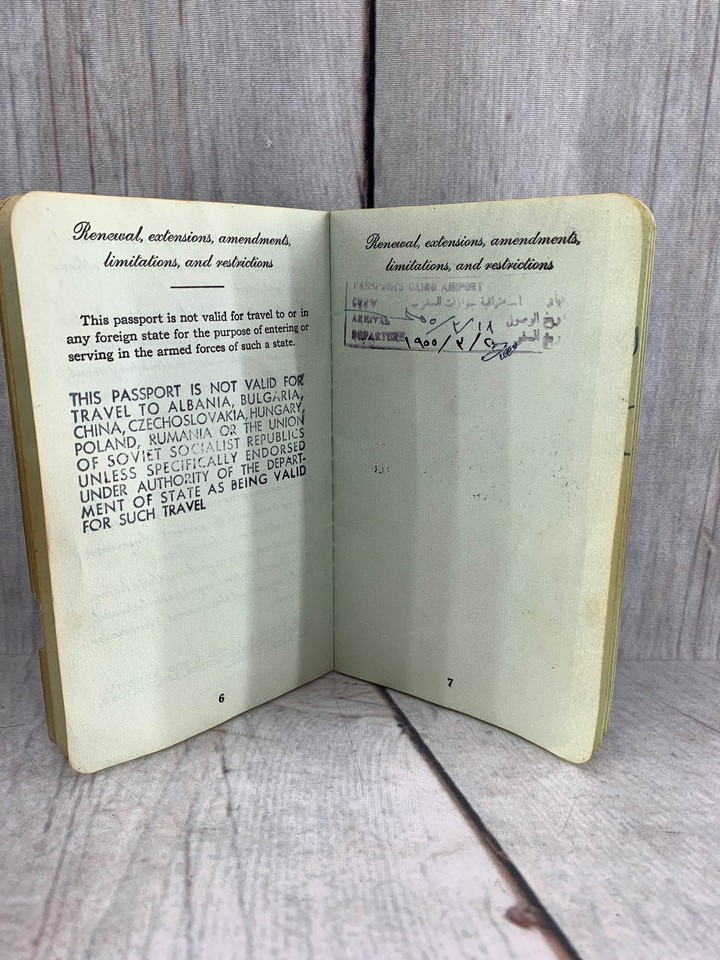 Renewal, extensions, amendments,
limitations, and restrictions
This passport is not valid for travel to or in
any foreign state for the purpose of entering or
serving in the armed forces of such a state.
THIS PASSPORT IS NOT VALID FOR
TRAVEL TO ALBANIA, BULGARIA,
CHINA, CZECHOSLOVAKIA, HUNGARY,
POLAND, RUMANIA OR THE UNION
OF SOVIET SOCIALIST REPUBLICS
UNLESS SPECIFICALLY ENDORSED
UNDER AUTHORITY OF THE DEPART-
MENT OF STATE AS BEING VALID
FOR SUCH TRAVEL
6
Renewal, extensions, amendments,
limitations, and restrictions
PASSPORTS CAIRO AIRPORT
مراقبة جوازات السفر
ARRIVAL ٢/١٨ الوصول
DEPARTURE ١٩٥٥/٢/ السفر
7